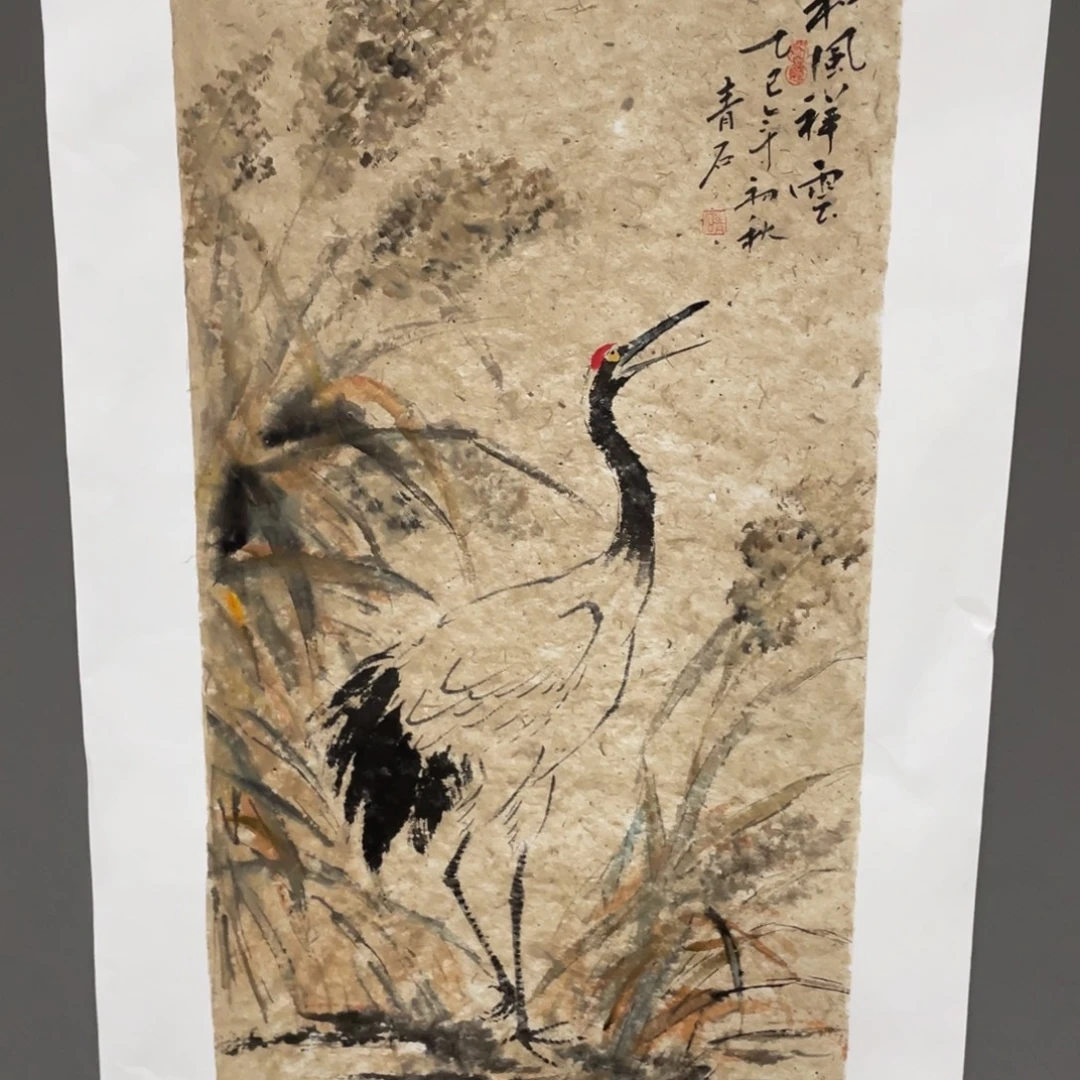 和風祥雲
乙巳年初秋
青石